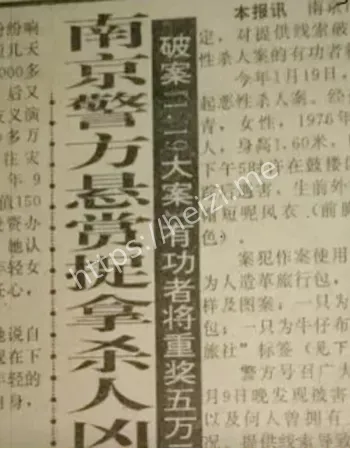 纷响
几天
000多
后又
义演
多万
往灾
年 9
值150
办
她认
轻女
心,
说自
在下
轻的
自身,
南京警方悬赏捉拿杀人凶
破案 1.19 大案有功者将重奖五万
本报讯 南京
定,对提供线索破
性杀人案的有功者
今年1月19日,
起恶性杀人案。经
青,女性,1976
人,身高1.60米,
下午5时许在鼓楼
后遇害,生前外
短呢风衣(前
色)。
案犯作案使用
为人造革旅行包,
样及图案;一只为
包;一只为牛仔布
旅社"标签(见下
警方号召广大
月9日晚发现被害
以及何人曾拥有
况,提供线索导致
https://heizi.me